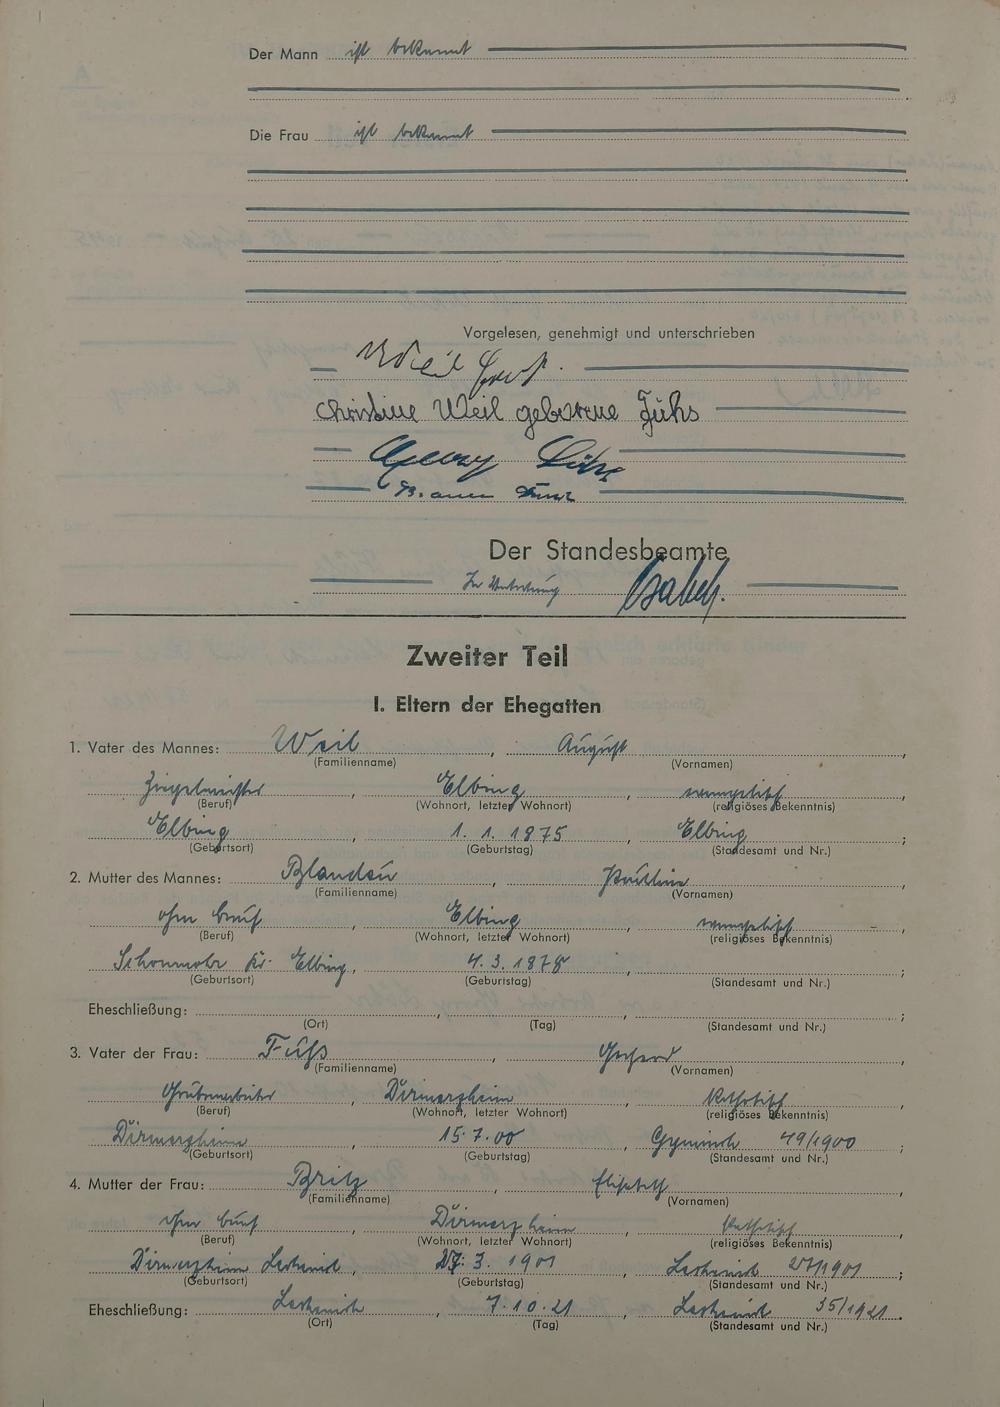 Der Mann ist bekannt
Die Frau ist bekannt
Vorgelesen, genehmigt und unterschrieben
Weil
Christine Weil geborene Füks
Georg
Der Standesbeamte
In Vertretung
Zweiter Teil
I. Eltern der Ehegatten
1. Vater des Mannes: Weil, August
(Familienname) (Vornamen)
Ziegelmeister, Elbing, evangelisch,
(Beruf) (Wohnort, letzter Wohnort) (religiöses Bekenntnis)
Elbing, 1. 1. 1875 Elbing;
(Geburtsort) (Geburtstag) (Standesamt und Nr.)
2. Mutter des Mannes: Blandau, Pauline,
(Familienname) (Vornamen)
ohne Beruf, Elbing, evangelisch,
(Beruf) (Wohnort, letzter Wohnort) (religiöses Bekenntnis)
Kr. Elbing, 4. 3. 1878, ;
(Geburtsort) (Geburtstag) (Standesamt und Nr.)
Eheschließung: , , ;
(Ort) (Tag) (Standesamt und Nr.)
3. Vater der Frau: Füks, Gerhard,
(Familienname) (Vornamen)
Grubenarbeiter, Dirmerzheim, katholisch,
(Beruf) (Wohnort, letzter Wohnort) (religiöses Bekenntnis)
Dirmerzheim, 15. 7. 00, Gymnich 49/1900;
(Geburtsort) (Geburtstag) (Standesamt und Nr.)
4. Mutter der Frau: Britz, Elisabeth,
(Familienname) (Vornamen)
ohne Beruf, Dirmerzheim, katholisch,
(Beruf) (Wohnort, letzter Wohnort) (religiöses Bekenntnis)
Dirmerzheim Lechenich, 27. 3. 1901, Lechenich 27/1901;
(Geburtsort) (Geburtstag) (Standesamt und Nr.)
Eheschließung: Lechenich, 7. 10. 21, Lechenich 35/1921.
(Ort) (Tag) (Standesamt und Nr.)